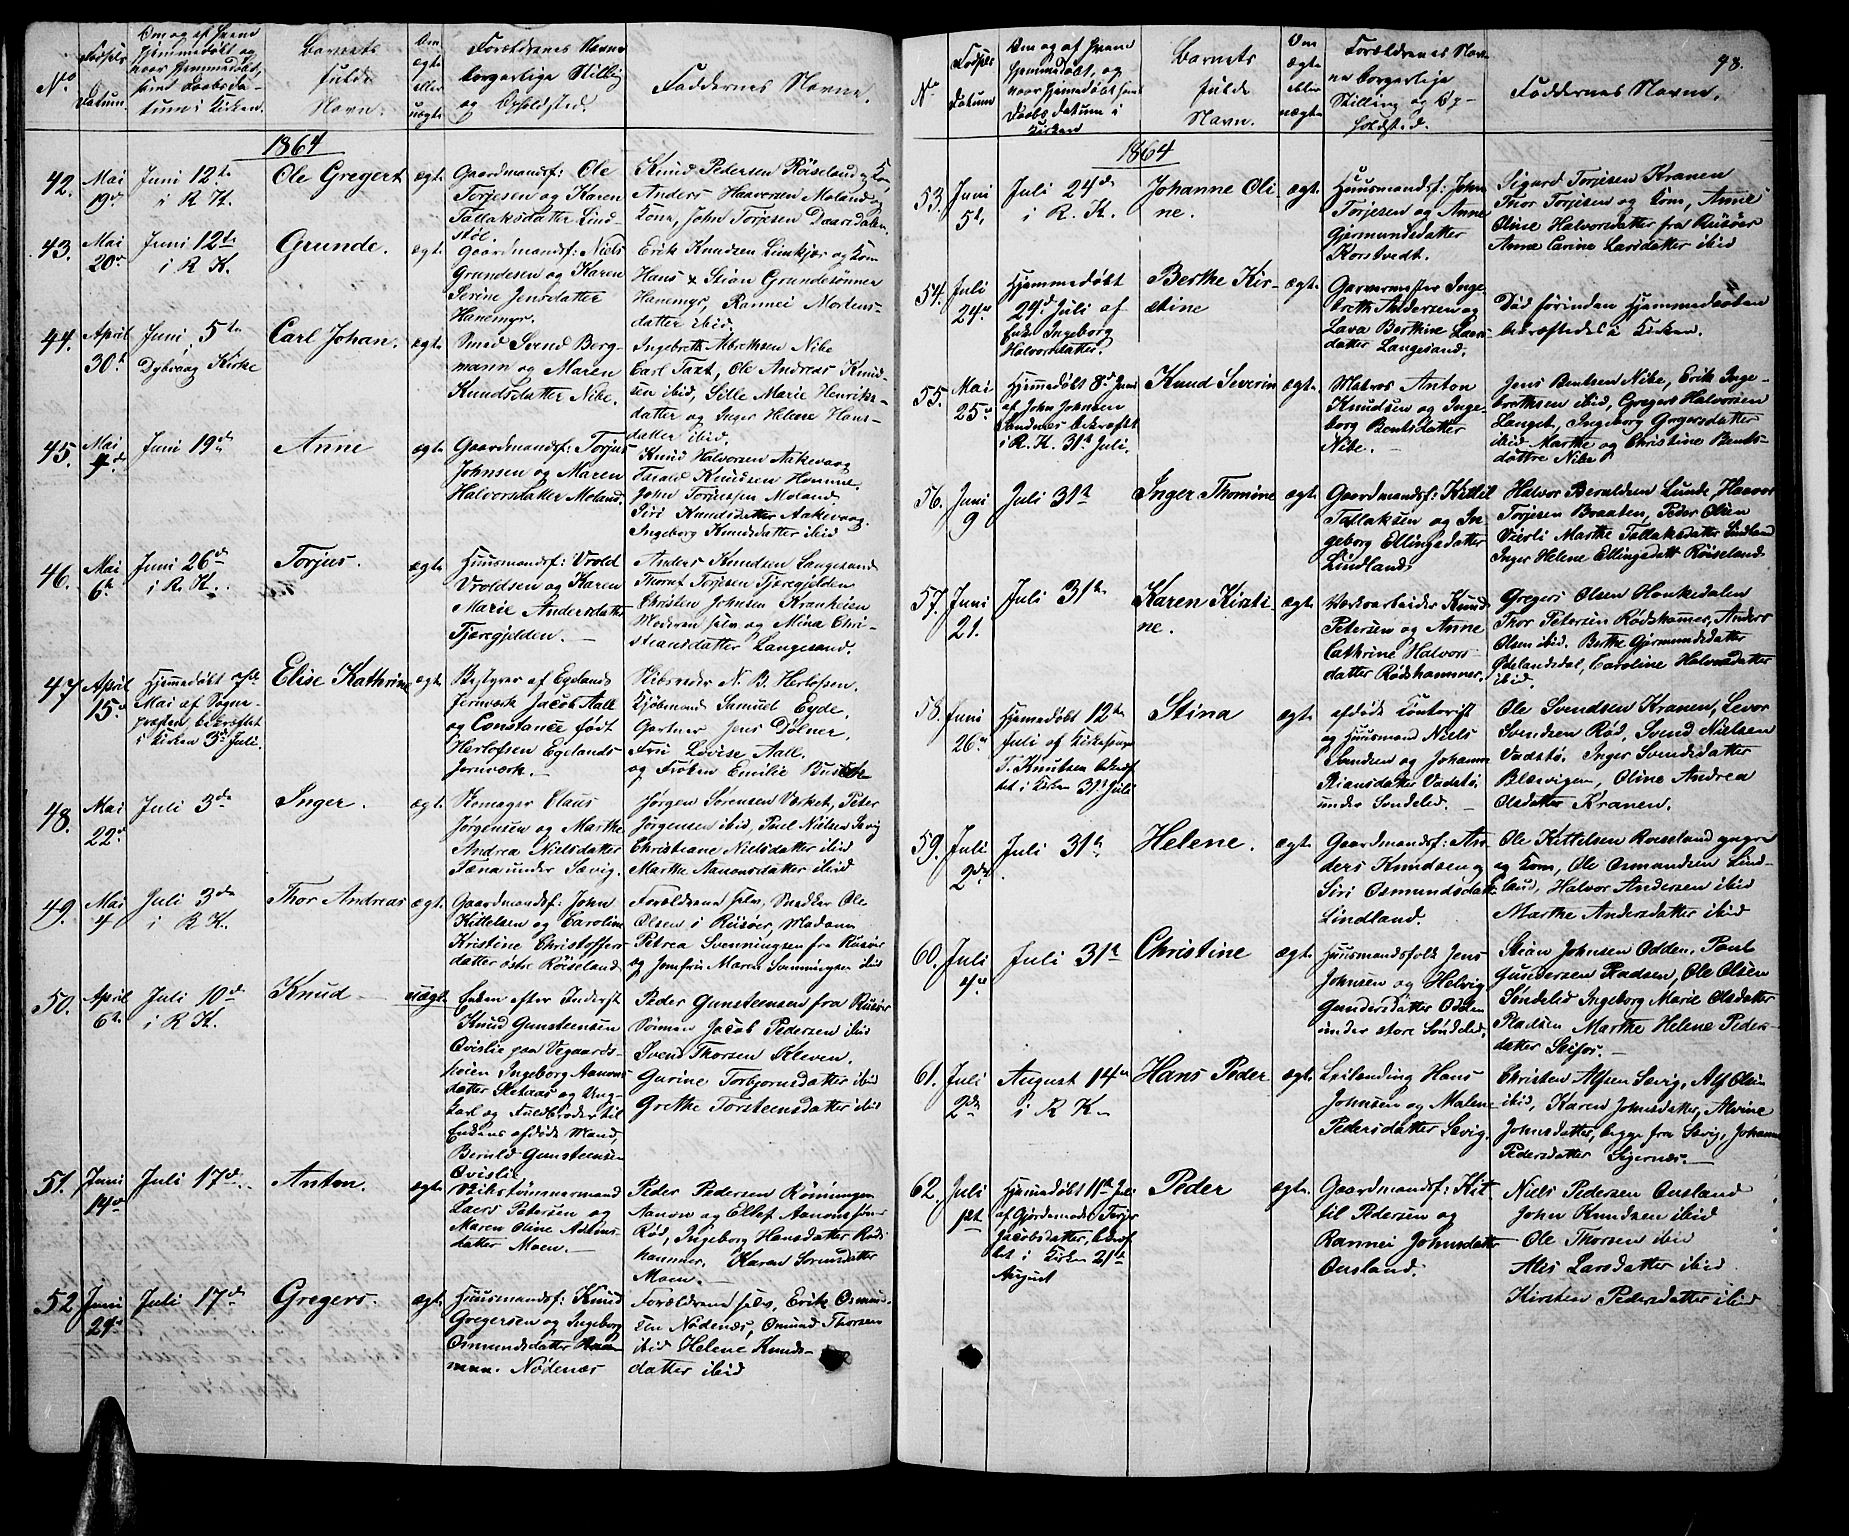 No
Fødsels Datum.
Om og af hvem
hjemmedøbt og
naar hjemmedøbt,
samt Daabsda-
tum i Kirken.
Barnets
fulde
Navn.
Om
ægte
eller
uægte
Forældrenes Navne
borgerlige Stilling
og Opholdsted.
Faddernes Navne.
1864
42.
Mai
19de
Juni 12te
i R. K.
Ole Gregert
ægt.
Gaardmandsf: Ole
Torjesen og Karen
Tallaksdatter Lind-
støl.
Knud Pedersen Röiseland og Kon,
Anders Haaversen Moland og
Kone, John Torjesen Daarsdalen.
43.
Mai
20de
Juni 12te
i R. K.
Grunde.
ægt.
Gaardmandsf: Niels
Grundesen og Karen
Serine Jensdatter
Hanemyr.
Erik Knudsen Limkjær og Kom
Hans & Stian Grundesønner
Hanemyr, Rannei Mortens-
datter ibid.
44.
April
30te
Juni 5te
Dybvaag Kirke
Carl Johan.
ægt.
Smed Svend Berg-
mann og Maren
Knudsdatter Nibe.
Ingebreth Albrethsen Nibe
Carl Taxt, Ole Andreas Knud-
sen ibid, Sille Marie Henriks-
datter og Inger Helene Hans-
datter ibid.
45.
Mai
4de
Juni 19de
Anne
ægt.
Gaardmandsf: Torjus
Johnsen og Maren
Halvorsdatter Moland.
Knud Halvorsen Aakevaag
Tarald Knudsen Homme.
John Torjussen Moland
Siri Knudsdatter Aakevaag.
Ingeborg Knudsdatter ibid
46.
Mai
6te
Juni 26de
i R. K.
Torjus.
ægt.
Huusmandsf: Vrold
Vroldsen og Karen
Marie Andersdatter
Tjæregjelden.
Anders Knudsen Langesand
Thorut Torjesen Tjæregjelden
Christen Johnsen Kranheien
Moderen selv og Mina Chri-
stiansdatter Langesand.
47
April
15de
Hjemmedøbt
Mai af Sogne-
præsten bekræftet
i Kirken 3de Juli.
Elise Kathrine
ægt.
Bestyrer af Egelands
Jernværk Jacob Aall
og Constance født
Herlofsen Egelands
Jernværk.
Skibsreder N. B. Herlofsen.
Kjøbmand Samuel Eyde,
Gartner Jens Dølner,
Fru Lovise Aall.
og Frøken Emilie Busch
48.
Mai
22de
Juli 3de
Inger.
ægt.
Skomager Claus
Jørgensen og Marthe
Andrea Nielsdatter
Tæna under Sævig.
Jørgen Sørensen Værket, Peter
Jørgensen ibid, Poul Nielsen Sævig
Christiane Nielsdatter ibid
Marthe Aanonsdatter ibid
49.
Mai
4
Juli 3de
i R. K.
Thor Andreas
ægt.
Gaardmandsf: John
Kittelsen og Caroline
Kristine Christoffers-
datter østre Røiseland
Forældrene selv, Snedker Ole
Olsen i Risøer, Madame
Petrea Svenningsen fra Risøer
og Jomfru Maren Svenningsen ibid
50.
April
6te
Juli 10de
i R. K.
Knud
uægt.
Enken efter Inderst
Knud Gunsteensen
Qvislie paa Vegaards-
heien Ingeborg Aanons-
datter Sletaas og Ung-
karl og Fuldbroder til
Enkens afdøde Mand,
Bernld Gunsteensen
Qvislie
Peder Gunsteensen fra Risøer
Sönnen Jacob Pedersen ibid
Svend Thorsen Kleven.
Gurine Torbjornsdatter ibid
Grethe Torsteensdatter ibid
51.
Juni
14de
Juli 17de
Anton.
ægt.
Skibstømmermand
Lars Petersen og
Maren Oline Asbiørns-
datter Moen.
Peder Pedersen Rønningen
Aanon og Ellef Aanonssønner
Rød, Ingeborg Hansdatter Røds-
hammer. Karen Sørensdatter
Moen.
52
Juni
24de
Juli 17de
Gregers.
ægt.
Huusmandsf: Knud
Gregersen og Ingeborg
Osmundsdatter
Nødenæs
Forældrene selv, Erik Osmund-
sen Nødenæs, Osmund Thorsen
ibid Helene Knuds-
datter ibid
98.
No
Fødsels
Datum
Om og af hvem
hjemmedøbt, og
naar hjemmedøbt samt
Daabs Datum i
Kirken
Barnets
fulde
Navn.
Om
ægte
eller
uægte
Forældrenes Nav-
ne borgerlige
Stilling og Op-
holdsted.
Faddernes Navne.
1864
53.
Juni
5te
Juli 24de
i R. K.
Johanne Oli-
ne.
ægt.
Huusmandsf: John
Torjesen og Anne
Gjermundsdatter
Korstvedt.
Sigurd Torjesen Kranen
Thor Torjesen og Kone, Anne
Oline Halvorsdatter fra Risøer
Anne Carine Larsdatter ibid
54.
Juli
24de
Hjemmedøbt
29de Juli af
Enke Ingeborg
Halvorsdatter.
Berthe Kir-
stine
ægt.
Garvermester Inge-
breth Andersen og
Lava Berthine Lars-
datter Langesand.
Död förinden Hjemmedaaben
bekræftedes i Kirken.
55.
Mai
25de
Hjemmedøbt 8de Juni
af John Johnsen
Sandnæs bekræftet
i R. K. 31te Juli.
Knud Severin
ægt.
Matros Anton
Knudsen og Inge-
borg Bentsdatter
Nibe.
Jens Bentsen Nibe, Erik Inge-
brethsen ibid, Gregers Halvorsen
Langet, Ingeborg Gregersdatter
ibid Marthe og Christine Bents-
døttre Nibe
56.
Juni
9
Juli 31te
Inger Thomine
ægt.
Gaardmandsf: Kittil
Tallaksen og In-
geborg Ellingsdatter
Lindland.
Halvor Beruldsen Lunde Haavor
Torjesen Braaten, Peder Olsen
Qierli Marthe Tallaksdatter Lindland
Inger Helene Ellingsdatt Røiseland
57.
Juni
21.
Juli 31te
Karen Kirsti-
ne.
ægt.
Værksarbeider Knud
Petersen og Anne
Cathrine Halvors-
datter Rødshammer.
Gregers Olsen Haukedalen
Thor Petersen Rødshamer, Anders
Olsen ibid. Berthe Gjermundsdatter
Ødelandsdal, Caroline Halvorsdatter
ibid.
58.
Juni
26de
Hjemmedøbt 12te
Juli af Kirkesanger
T. Knutsen bekræf-
tet i Kirken 31te Juli
Stina
ægt.
afdøde Kontorist
og Huusmand Niels
Svendsen og Johanne
Stiansdatter Vadstø
under Söndeled.
Ole Svendsen Kranen, Levor
Svendsen Rød, Svend Nielsen
Vadstø. Inger Svendsdatter
Blæsvigen, Oline Andrea
Olsdatter Kranen.
59.
Juli
2den
Juli 31te
Helene.
ægt.
Gaardmandsf: An-
ders Knudsen og
Siri Osmundsdatter
Lindland.
Ole Kittelsen Roiseland yngre
og Kone, Ole Osmundsen Lind-
land, Halvor Andersen ibid
Marthe Andersdatter ibid
60.
Juli
Juli 31te
Christine
ægt.
Huusmandsfolk Jens
Johnsen og Helvig
Gundersdatter Odden
under store Søndeled.
Stian Johnsen Odden. Poul
Gundersen Pladsen, Ole Olsen
Søndeled Ingeborg Marie Olsdatter
Pladsen Marthe Helene Peders-
datter Stifos.
61.
Juli
2de
August 14de
i R. K.
Hans Peder
ægt.
Leilænding Hans
Johnsen og Malene
Pedersdatter Sævig.
Christen Alfsen Sævig, Alf Olsen
ibid, Karen Johnsdatter, Alvine
Johnsdatter, begge fra Sævig, Johanne
Pedersdatter Sigernæs.
62.
Juli
1ste
Hjemmedøbt 11te Juli
af Gjordemoder Torjer
Jacobsdatter, bekræf-
tet i Kirken 21de
August
Peder
ægt.
Gaardmandsf: Kit-
til Pedersen og
Rannei Johnsdatter
Ousland.
Niels Pedersen Ousland
John Knudsen ibid
Ole Thorsen ibid
Alis Larsdatter ibid
Kirsten Pedersdatter ibid